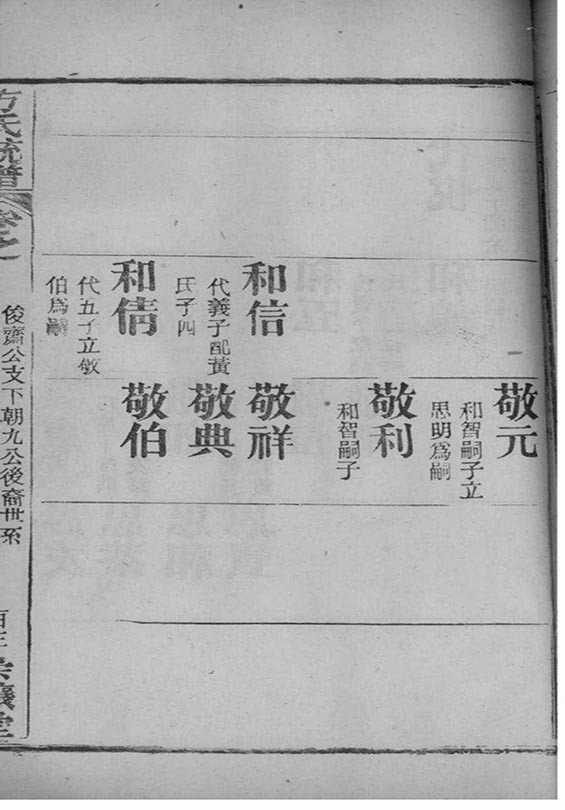 敬元
和智嗣子立
思明爲嗣
敬利
和智嗣子
和信
代義子配黃
氏子四
敬祥
敬典
和倩
代五子立敬
伯爲嗣
敬伯
方氏統譜
卷之
俊齋公支下朝九公後裔世系